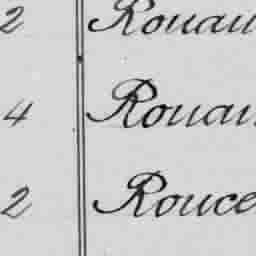 2 Rouau
4 Rouau
2 Rouce